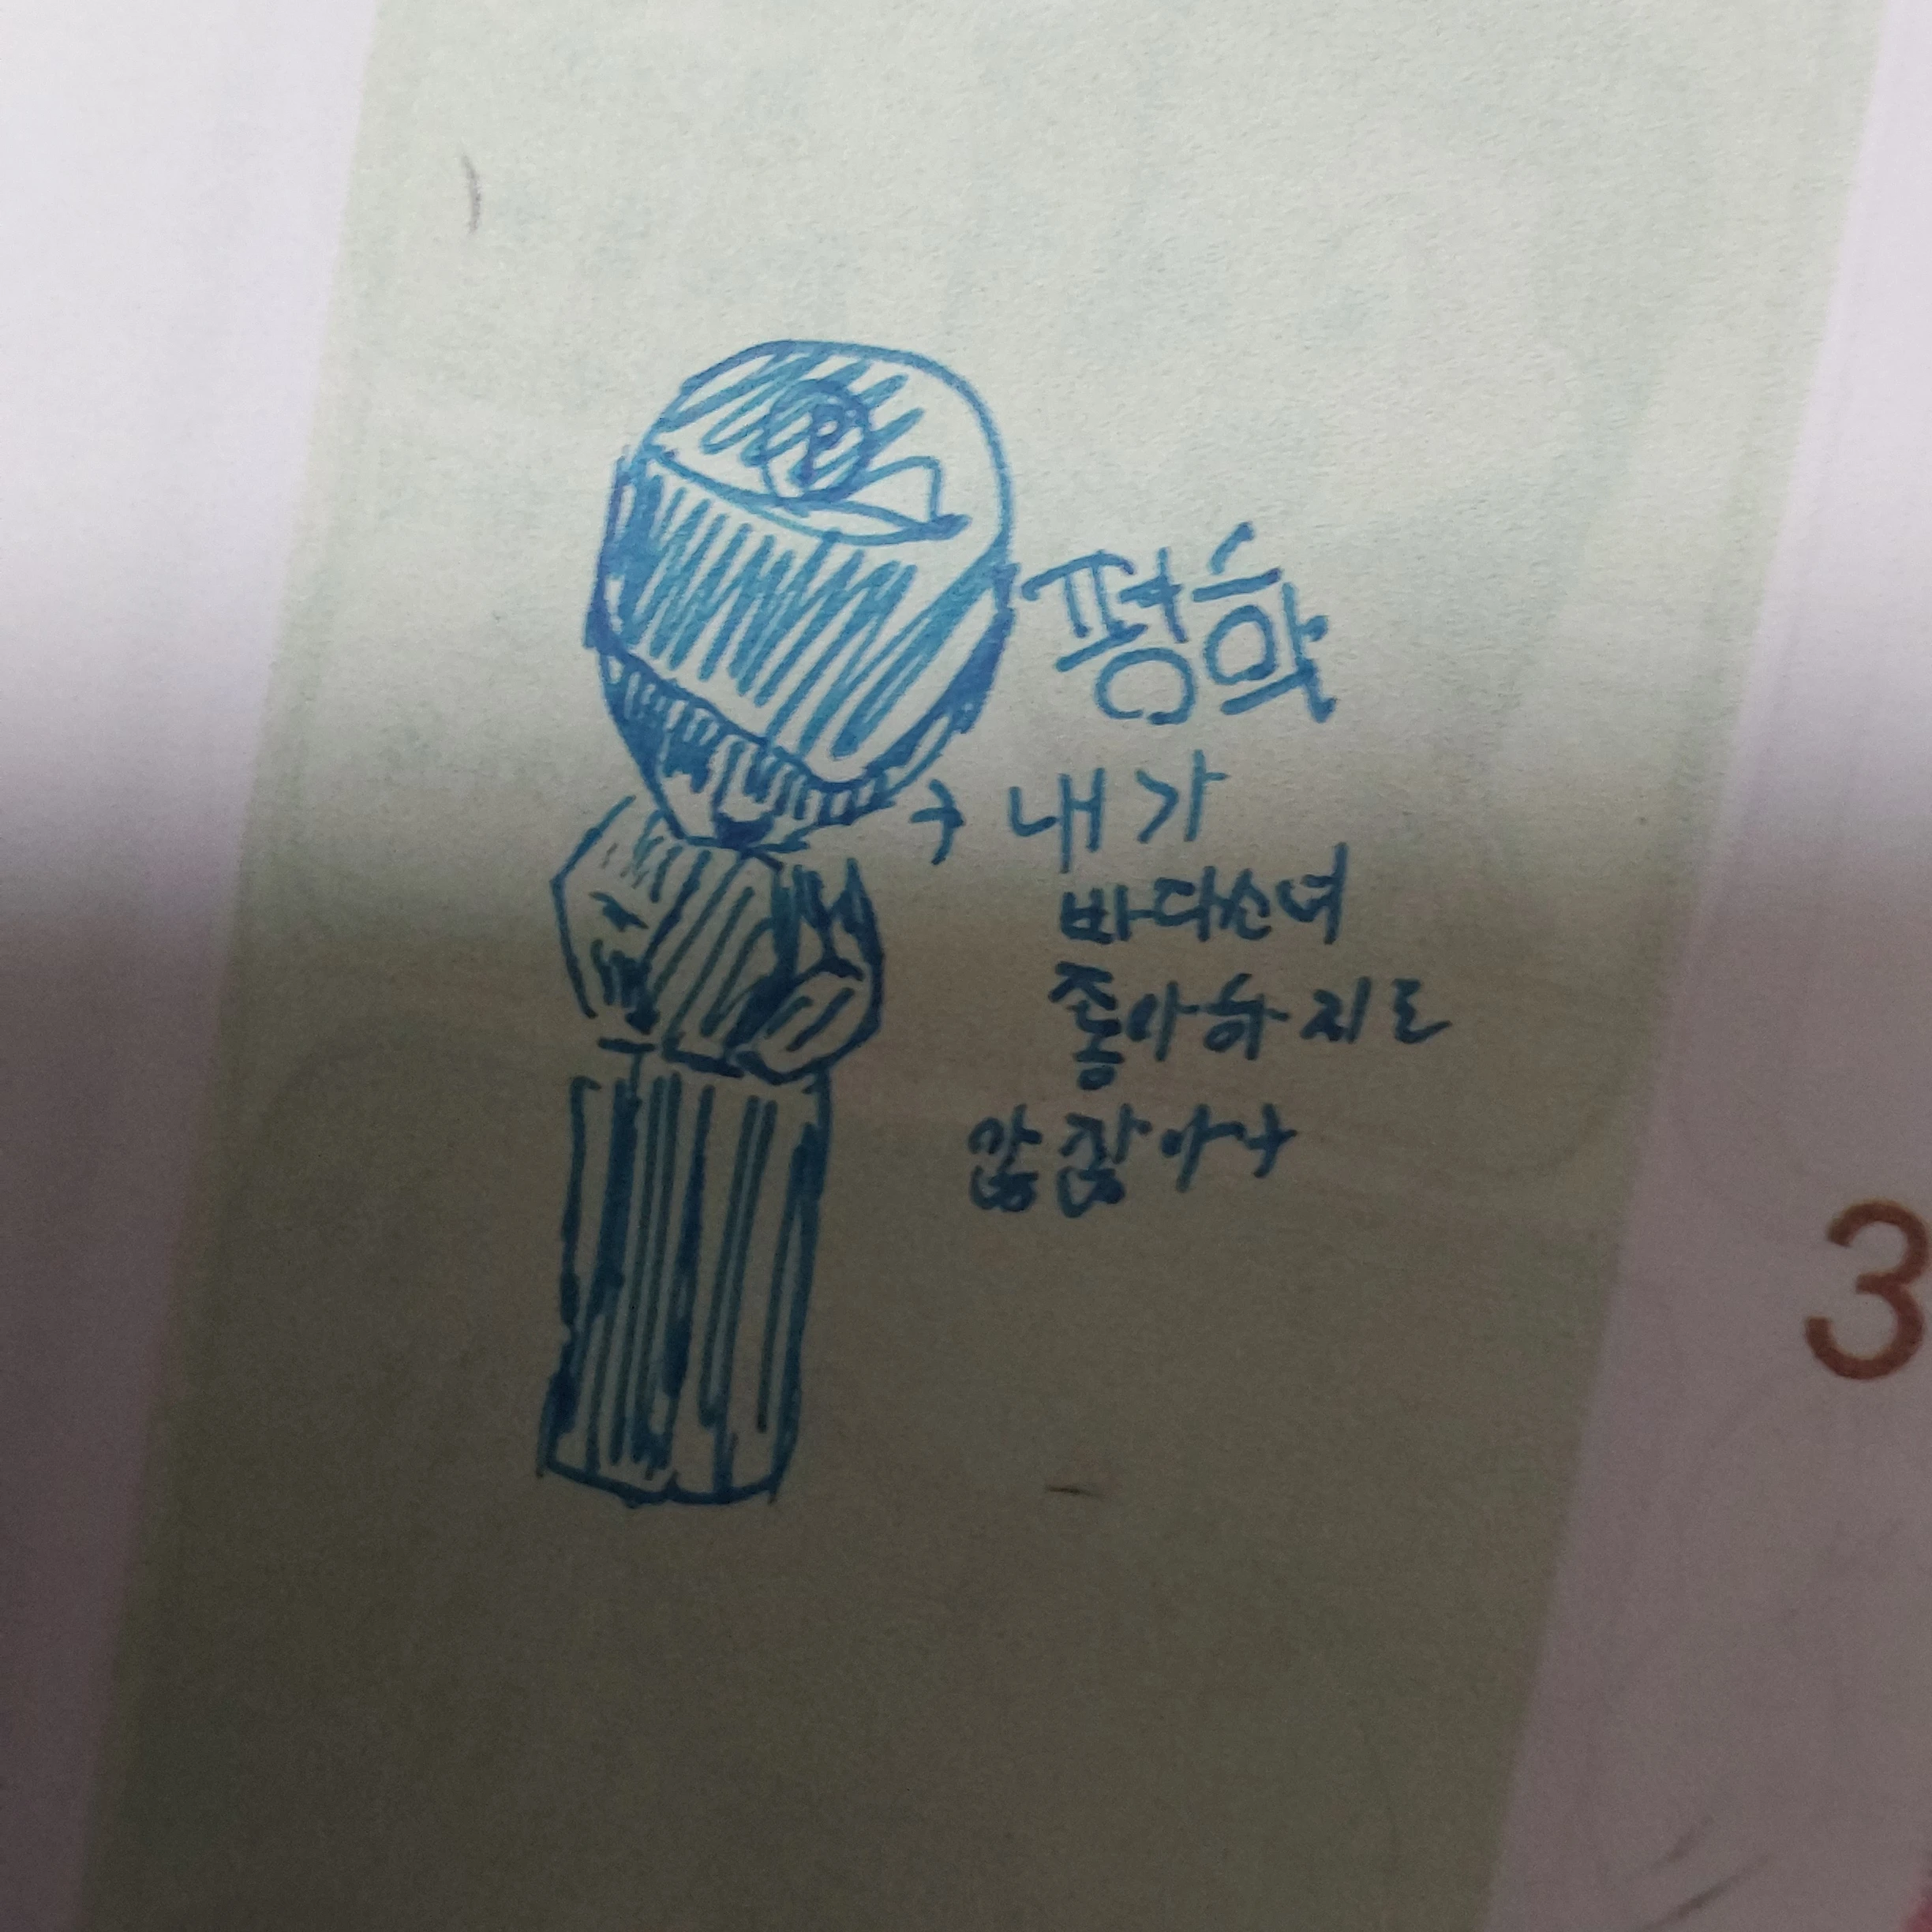 평학
→ 내가
바다소녀
좋아하지도
않잖아
3